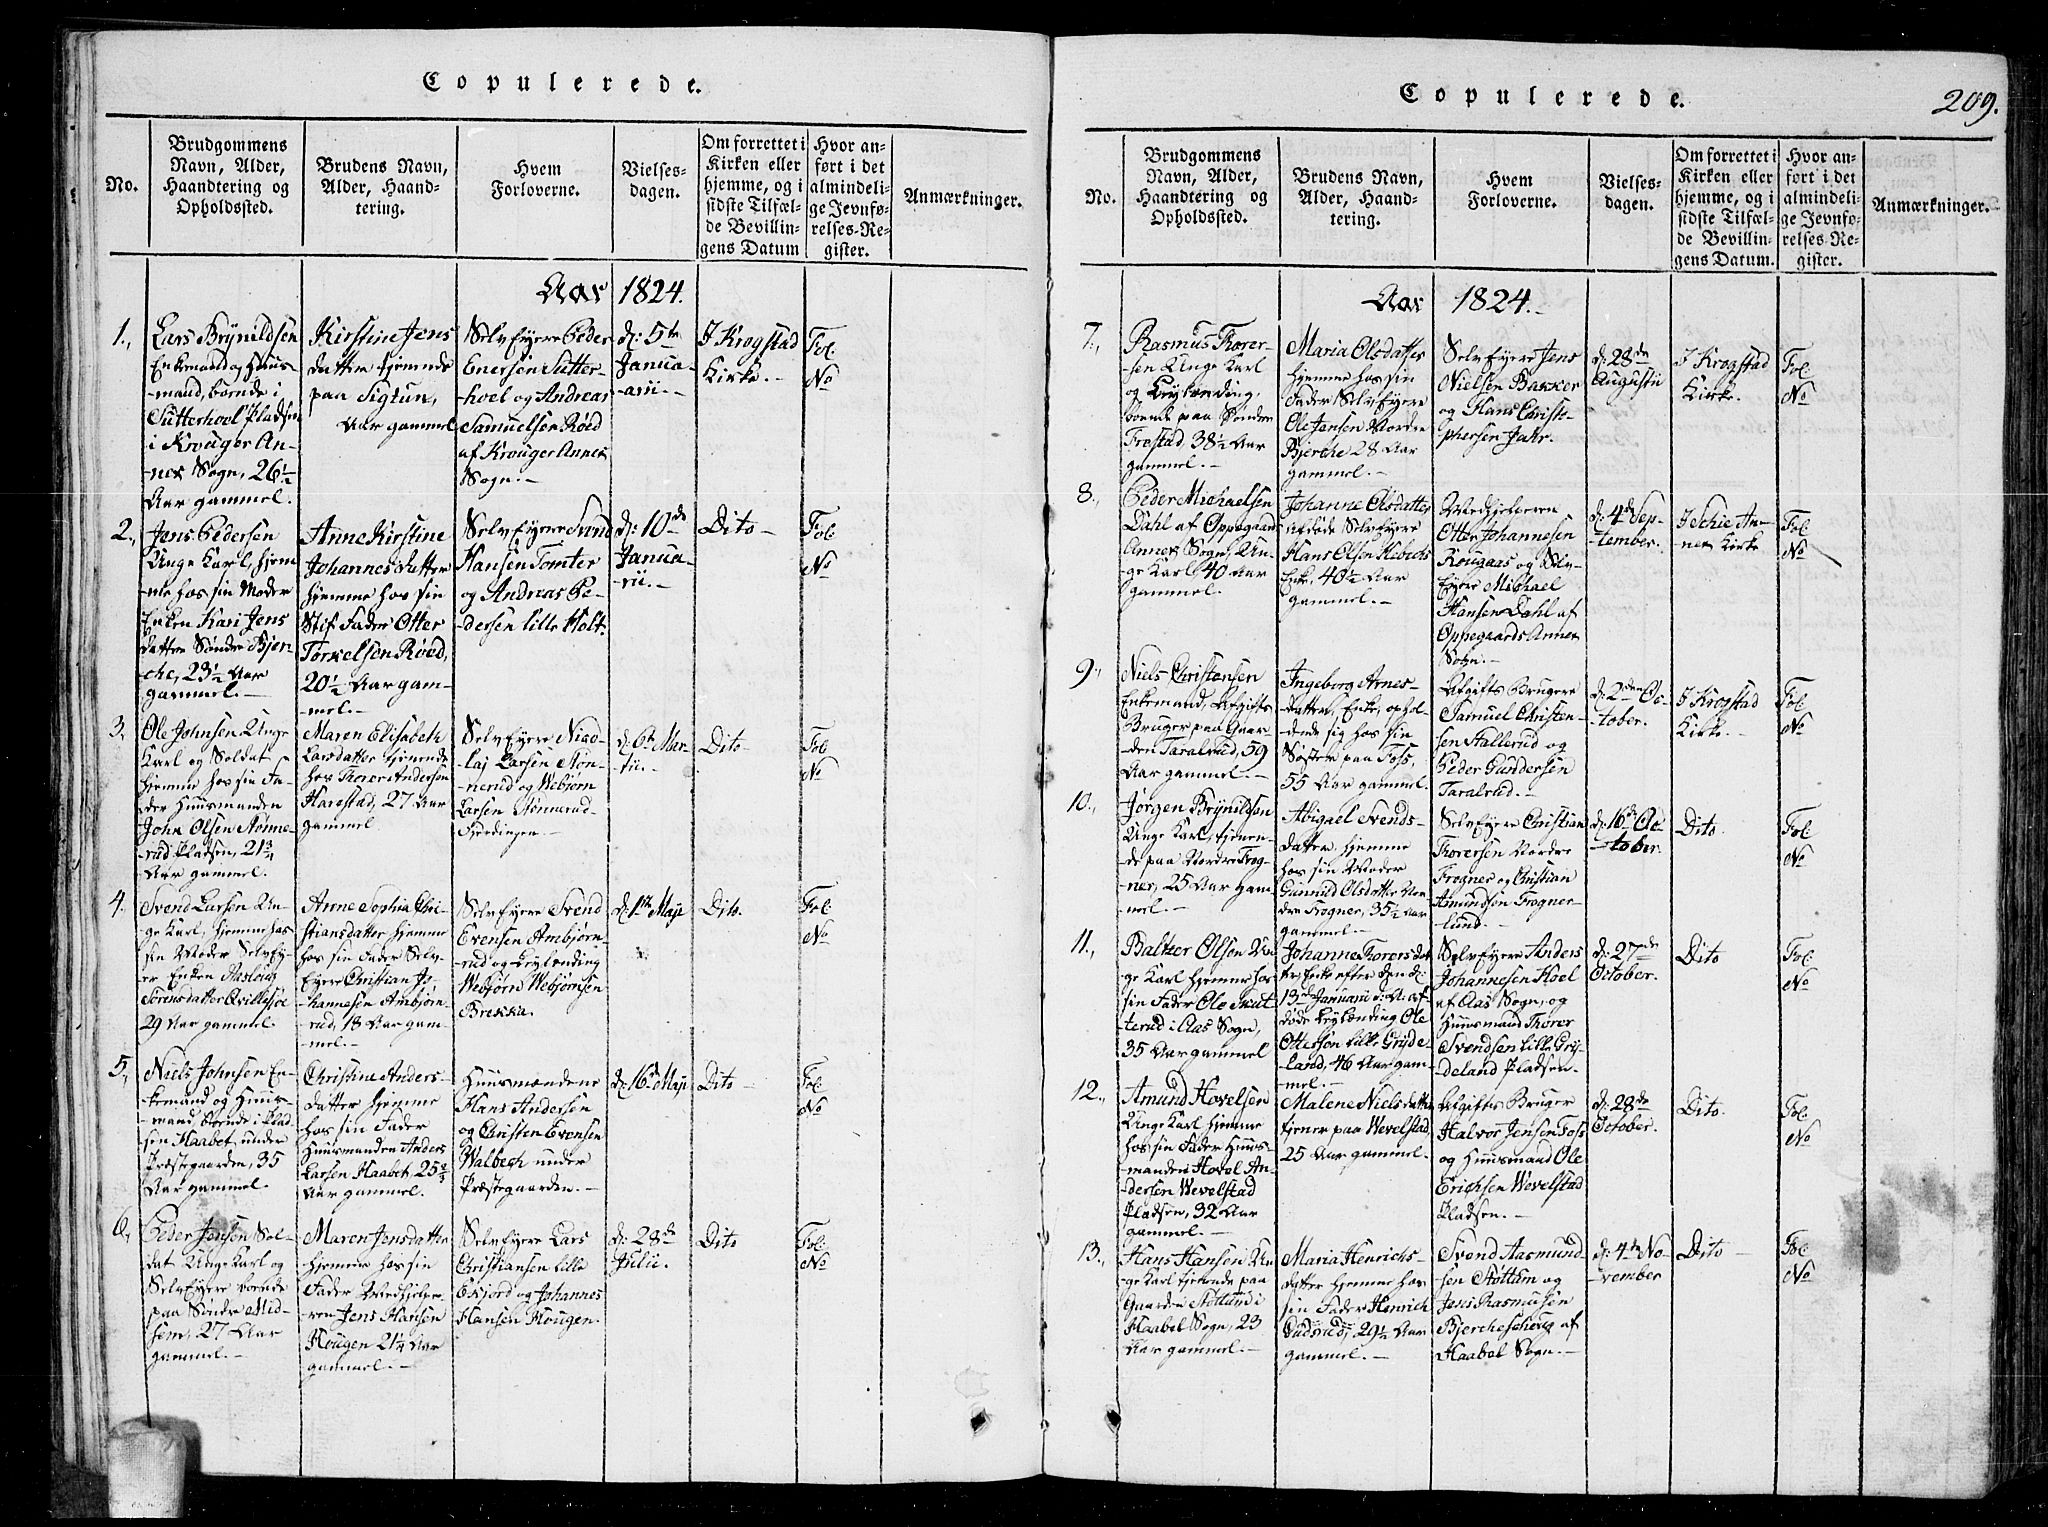 Copulerede.
No.
Brudgommens
Navn, Alder,
Haandtering og
Opholdssted.
Brudens Navn,
Alder, Haand-
tering.
Hvem
Forloverne.
Vielses-
dagen.
Om forrettet i
Kirken eller
hjemme, og i
sidste Tilfæl-
de Bevillin-
gens Datum
Hvor an-
ført i det
almindeli-
ge Jevnfø-
relses-Re-
gister.
Anmærkninger.
Aar 1824.
1.,
Lars Brynildsen
Enkemand og Huus-
mand, boende i
Sutterhoel Pladsen
i Krouger An-
nex Sogn, 26½
Aar gammel.
Kirstine Jens
datter tjenende
paa Sigtun,
Aar gammel
SelvEyere Peder
Enersen Sutter-
hoel og Andreas
Samuelsen Røed
af Krouger Annex
Sogn.-
d: 5te
Janua-
arii.-
I Krogstad
Kirke.-
Fol
No
2.,
Jens Pedersen
Unge Karl, hjem-
me hos sin Moder
Enken Kari Jens
datter Søndre Bjer-
che, 23½ Aar
gammel.-
Anne Kirstine
Johannesdatter
hjemme hos sin
Stif Fader Otter
Torkelsen Røed,
20½ Aar gam-
mel.-
SelvEyere Svend
Hansen Tomter
og Andreas Pe-
dersen lille Holt.
d: 10de
Janua-
rii.-
Dito-
Fol
No
3.
Ole Johnsen Unge
Karl og Soldat
hjemme hos sin Fa-
der Huusmanden
John Olsen Stønne-
rud Pladsen, 21¾
Aar gammel.
Maren Elisabeth
Larsdatter tjenende
hos Thorer Andersen
Harestad, 27 Aar
gammel.
SelvEyere Nico-
laj Larsen Støn-
nerud og Webjørn
Larsen Stønnerud-
d: 6te Mar-
tii.-
Dito-
Fol
No
4.
Svend Larsen Un-
ge Karl, hjemme hos
sin Moder SelvEy-
er Enken Aaslaug
Sørensdatter Qvillesøe
29 Aar gammel.
Anne Sophia Chri-
stiansdatter hjemme
hos sin Fader Selv-
Eyere Christian Jo-
hannesen Ambjør-
rud, 18 Aar gam-
mel.-
SelvEyere Svend
Evensen Ambjørn-
rud og Leylænding
Webjørn Webjørnsen
Brekka.
d: 1ste Maji
Dito.
Fol
No
5.,
Niels Johnsen En-
kemand og Huus-
mand, boende i Plad
sen Haabet under
Præstegaarden, 35
Aar gammel.
Christine Anders-
datter hjemme
hos sin Fader
Huusmanden Anders
Larsen Haabet 25¾
Aar gammel.
Huusmændene
Hans Andersen
og Christen Evensen
Walbech under
Præstegaarden.-
d: 16de Maji
Dito-
Fol
No
6.,
Peder Jensen Sol-
dat Unge Karl og
SelvEyere boende
paa Søndre Mid-
sem, 27 Aar
gammel.-
Maren Jensdatter
hjemme hos sin
Fader Medhjelpe-
ren Jens Hansen
Hougen 21¼ Aar
gammel.-
SelvEyere Lars
Christiansen lille
Ekjord og Johannes
Hansen Hougen.
d: 28de
Julii.
Dito
Fol
No
Copulerede.
209.
No.
Brudgommens
Navn, Alder,
Haandtering og
Opholdssted.
Brudens Navn,
Alder, Haand-
tering.
Hvem
Forloverne.
Vielses-
dagen.
Om forrettet i
Kirken eller
hjemme, og i
sidste Tilfæl-
de Bevillin-
gens Datum.
Hvor an-
ført i det
almindeli-
ge Jevnfø-
relses-Re-
gister.
Anmærkninger.
Aar 1824.-
7.,
Rasmus Thorer-
sen Unge Karl
og Leylænding
boende paa Søndre
Frestad, 38½ Aar
gammel.-
Maria Olsdatter
hjemme hos sin
Fader SelvEyere
Ole Jensen Nordre
Bjerche 28 Aar
gammel.-
SelvEyere Jens
Nielsen Bakker
og Hans Christo-
phersen Jahr.
d: 28de
Augustii
I Krogstad
Kirke.
Fol
No
8.,
Peder Michaelsen
Dahl af Oppegaards
Annex Sogn, Un-
ge Karl, 40 Aar
gammel.
Johanne Olsdatter
afdøde SelvEyere
Hans Olsen Hebechs
Enke, 40½ Aar
gammel.-
Medhjelperen
Otter Johannesen
Kougaas og Selv-
Eyere Michael
Hansen Dahl af
Oppegaards Annex
Sogn.-
d: 4de Sep-
tember.
I Schie An-
nex Kirke
Fol
No
9.,
Niels Christensen
Enkemand, Afgifts
Bruger paa Gaar-
den Taralrud, 59
Aar gammel.-
Ingeborg Arnes-
datter, Enke, ophol-
dende sig hos sin
Søster paa Foss,
55 Aar gammel.
Afgifts Brugere
Samuel Christen-
sen Stallerud og
Peder Gundersen
Taralrud.-
d: 2den Oc-
tober.
I Krogstad
Kirke.-
Fol
No
10.,
Jørgen Brynildsen
Unge Karl, tjenen-
de paa Nordre Frog-
ner, 25 Aar gam-
mel.-
Abigael Svends-
datter hjemme
hos sin Moder
Gunnild Olsdatter Nor-
dre Frogner, 35½ Aar
gammel.-
SelvEyere Christian
Thorersen Nordre
Frogner og Christian
Amundsøn Frogner-
lund.-
d: 16de Oc-
tober.
Dito.
Fol
No
11.,
Baltzer Olsen Un-
ge Karl hjemme hos
sin Fader Ole Skut
terud i Aas Sogn,
35 Aar gammel
Johanne Thorersdat
ter, Enke efter den d:
13de Januarii d: A: af-
døde Leylænding Ole
Ottersøn lille Gryde-
land, 46 Aar gam-
mel.-
SelvEyere Anders
Johannesen Hoel
af Aas Sogn, og
Huusmand Thorer
Svendsen lille Gri-
deland Pladsen.-
d: 27de
October.
Dito
Fol
No
12.,
Amund Hovelsen
Unge Karl hjemme
hos sin Fader Huus-
manden Hovel An-
dersen Wevelstad
Pladsen, 32 Aar
gammel.-
Malene Nielsdatter
tjener paa Wevelstad,
25 Aar gammel.
Afgifts Bruger
Halvor Jensen Foss
og Huusmand Ole
Erichsen Wevelstad
Pladsen.-
d: 28de
October.
Dito.
Fol
No
13.,
Hans Hansen Un-
ge Karl tjenende paa
Gaarden Stotlund i
Haabøl Sogn, 23
Aar gammel.-
Maria Henrichs-
datter hjemme hos
sin Fader Henrich
Gudsrud, 29½ Aar
gammel.-
Svend Aasmund-
sen Stottum og
Jens Rasmusen
Bjercheschoug af
Haabøl Sogn.-
d: 4de No-
vember
Dito-
Fol
No